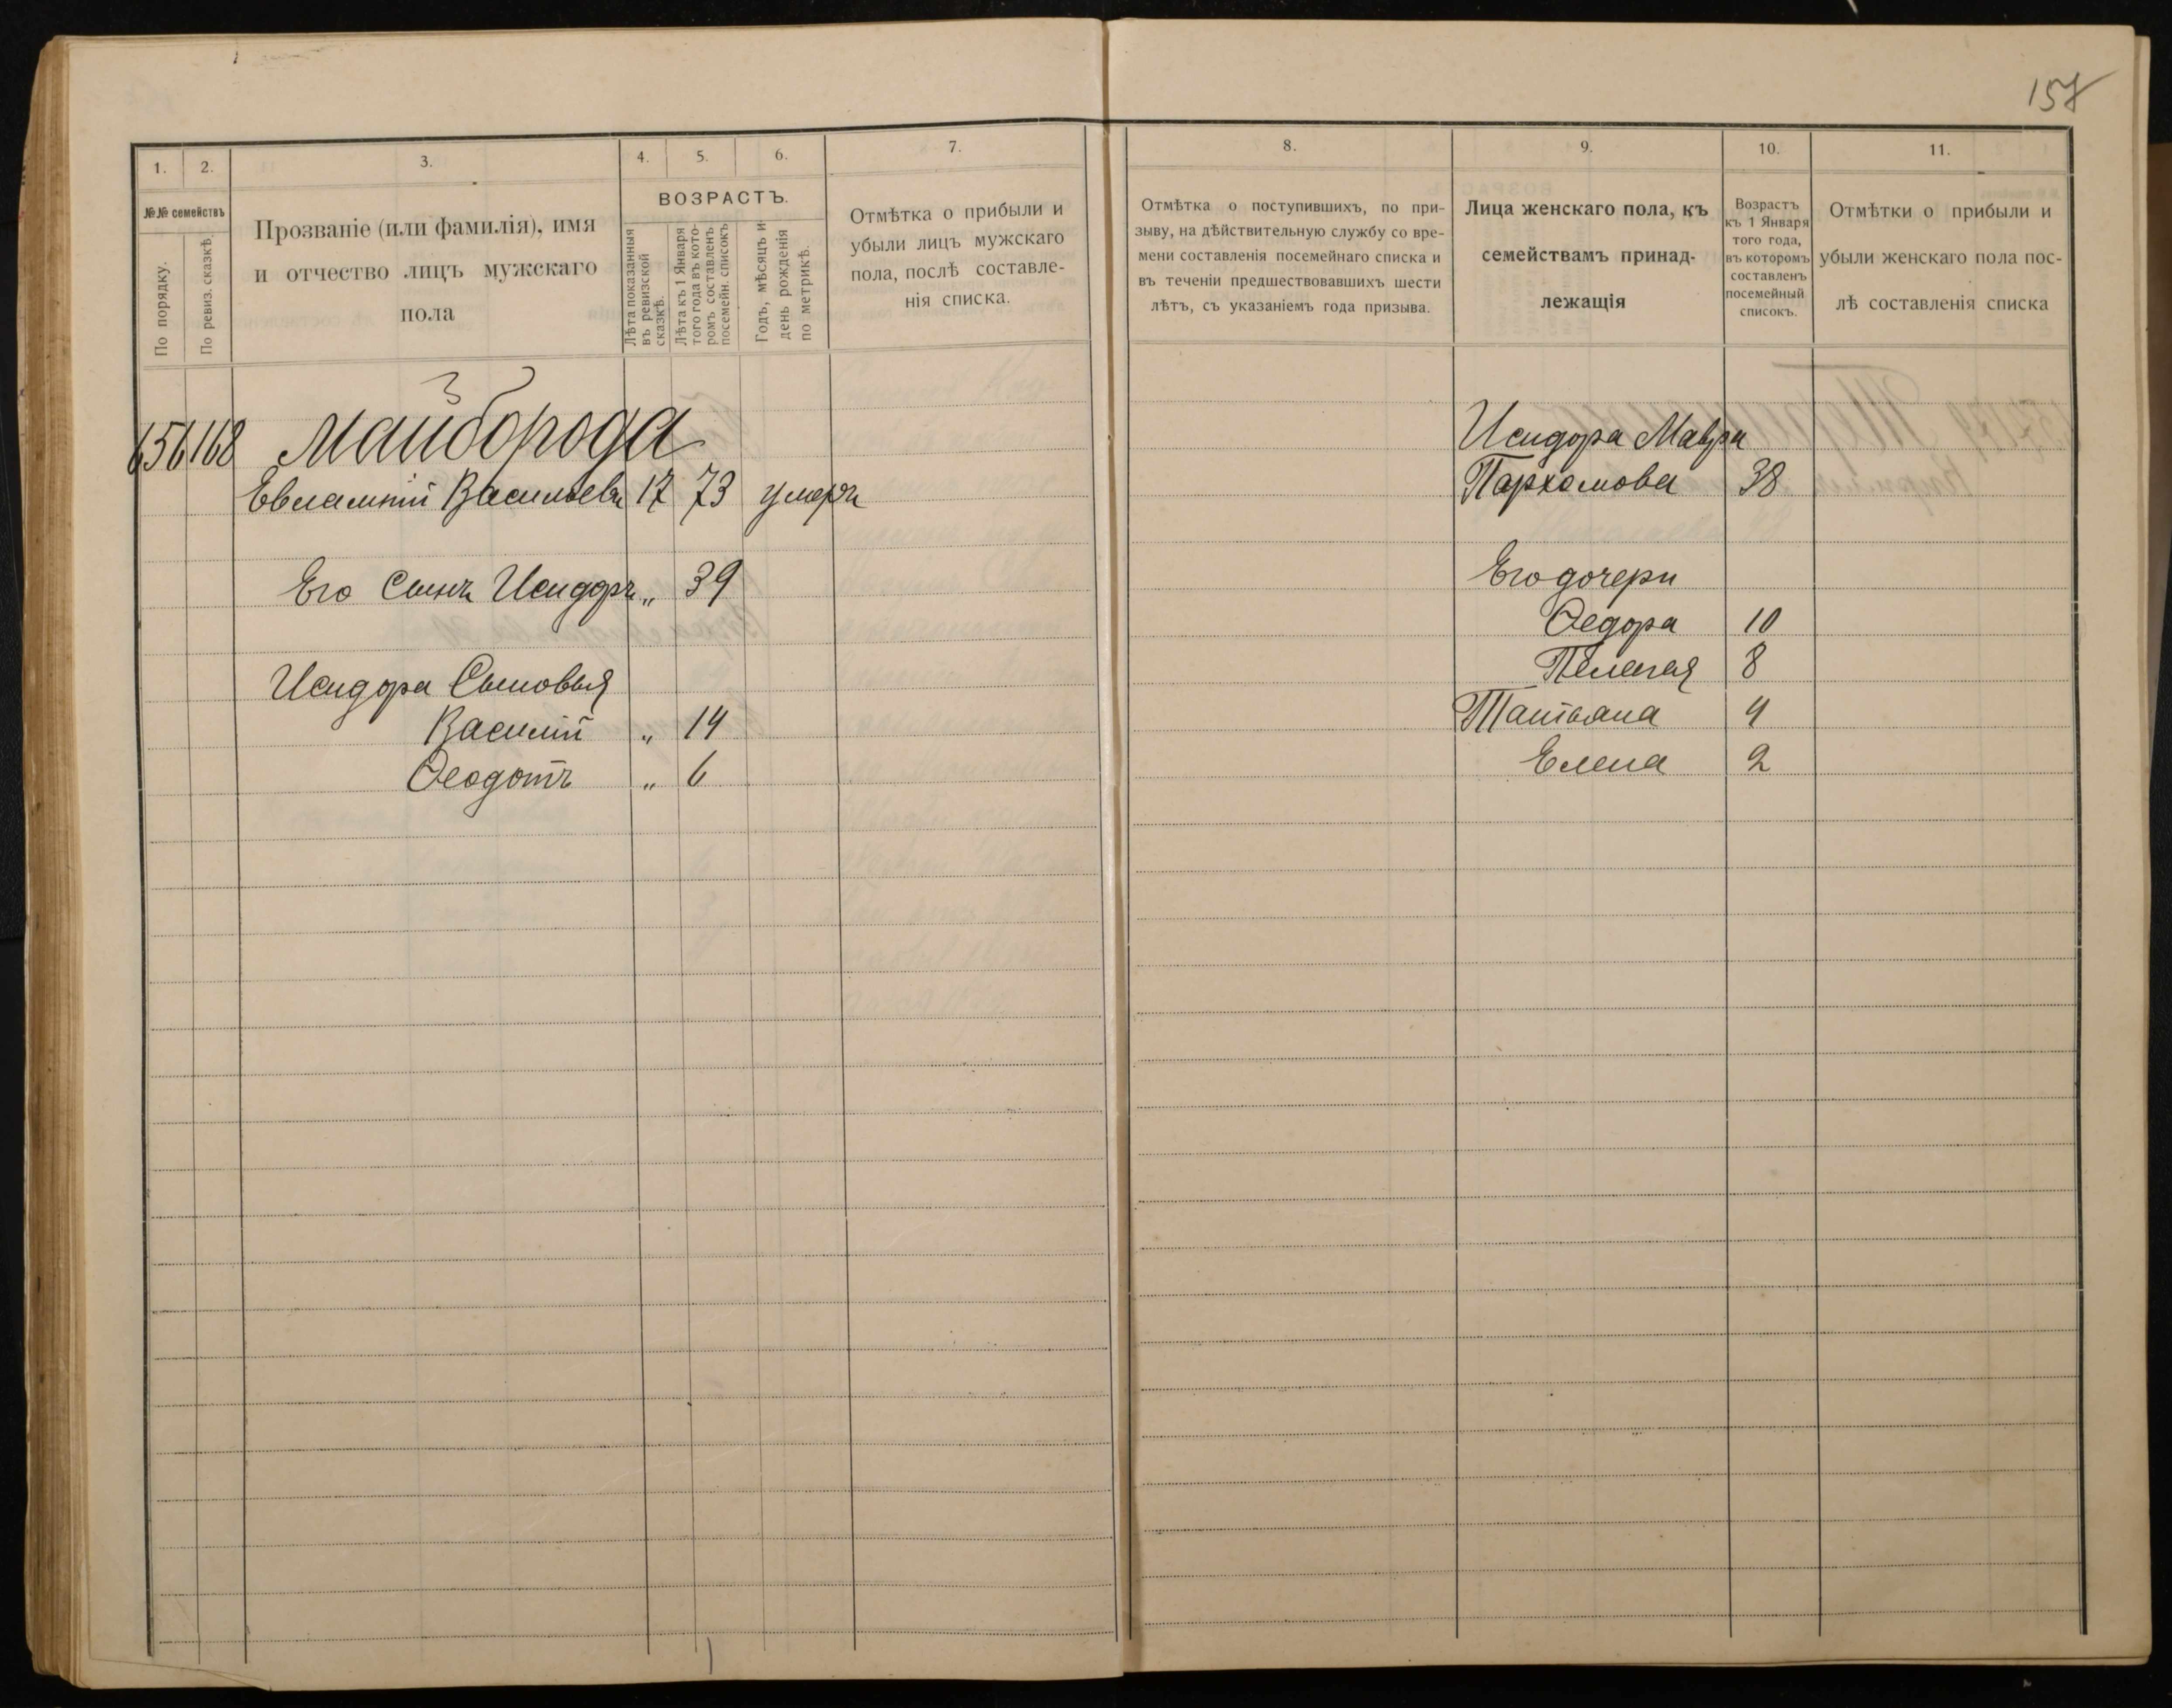 157
1.
2.
3.
4.
5.
6.
7.
№№ семействъ
По порядку.
По ревиз. сказкѣ.
Прозваніе (или фамилія), имя
и отчество лицъ мужскаго
пола
ВОЗРАСТЪ.
Лѣта показанныя
въ ревизской
сказкѣ.
Лѣта къ 1 Января
того года въ кото-
ромъ составленъ
посемейн. списокъ
Годъ, мѣсяцъ и
день рожденія
по метрикѣ.
Отмѣтка о прибыли и
убыли лицъ мужскаго
пола, послѣ составле-
нія списка.
656 168 Майборода
Евлампій Васильевъ 17 73 умеръ
Его Сынъ Исидоръ „ 39
Исидора Сыновья
Василій „ 14
Ѳеодотъ „ 6
8.
9.
10.
11.
Отмѣтка о поступившихъ, по при-
зыву, на дѣйствительную службу со вре-
мени составленія посемейнаго списка и
въ теченіи предшествовавшихъ шести
лѣтъ, съ указаніемъ года призыва.
Лица женскаго пола, къ
семействамъ принад-
лежащія
Возрастъ
къ 1 Января
того года,
въ которомъ
составленъ
посемейный
списокъ.
Отмѣтки о прибыли и
убыли женскаго пола пос-
лѣ составленія списка
Исидора Мавра
Пархомова 38
Его дочери
Ѳедора 10
Пелагея 8
Татьяна 4
Елена 2